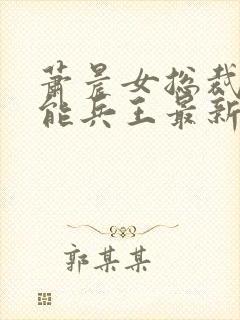 萧晨女总裁
能兵王最新
郭某某